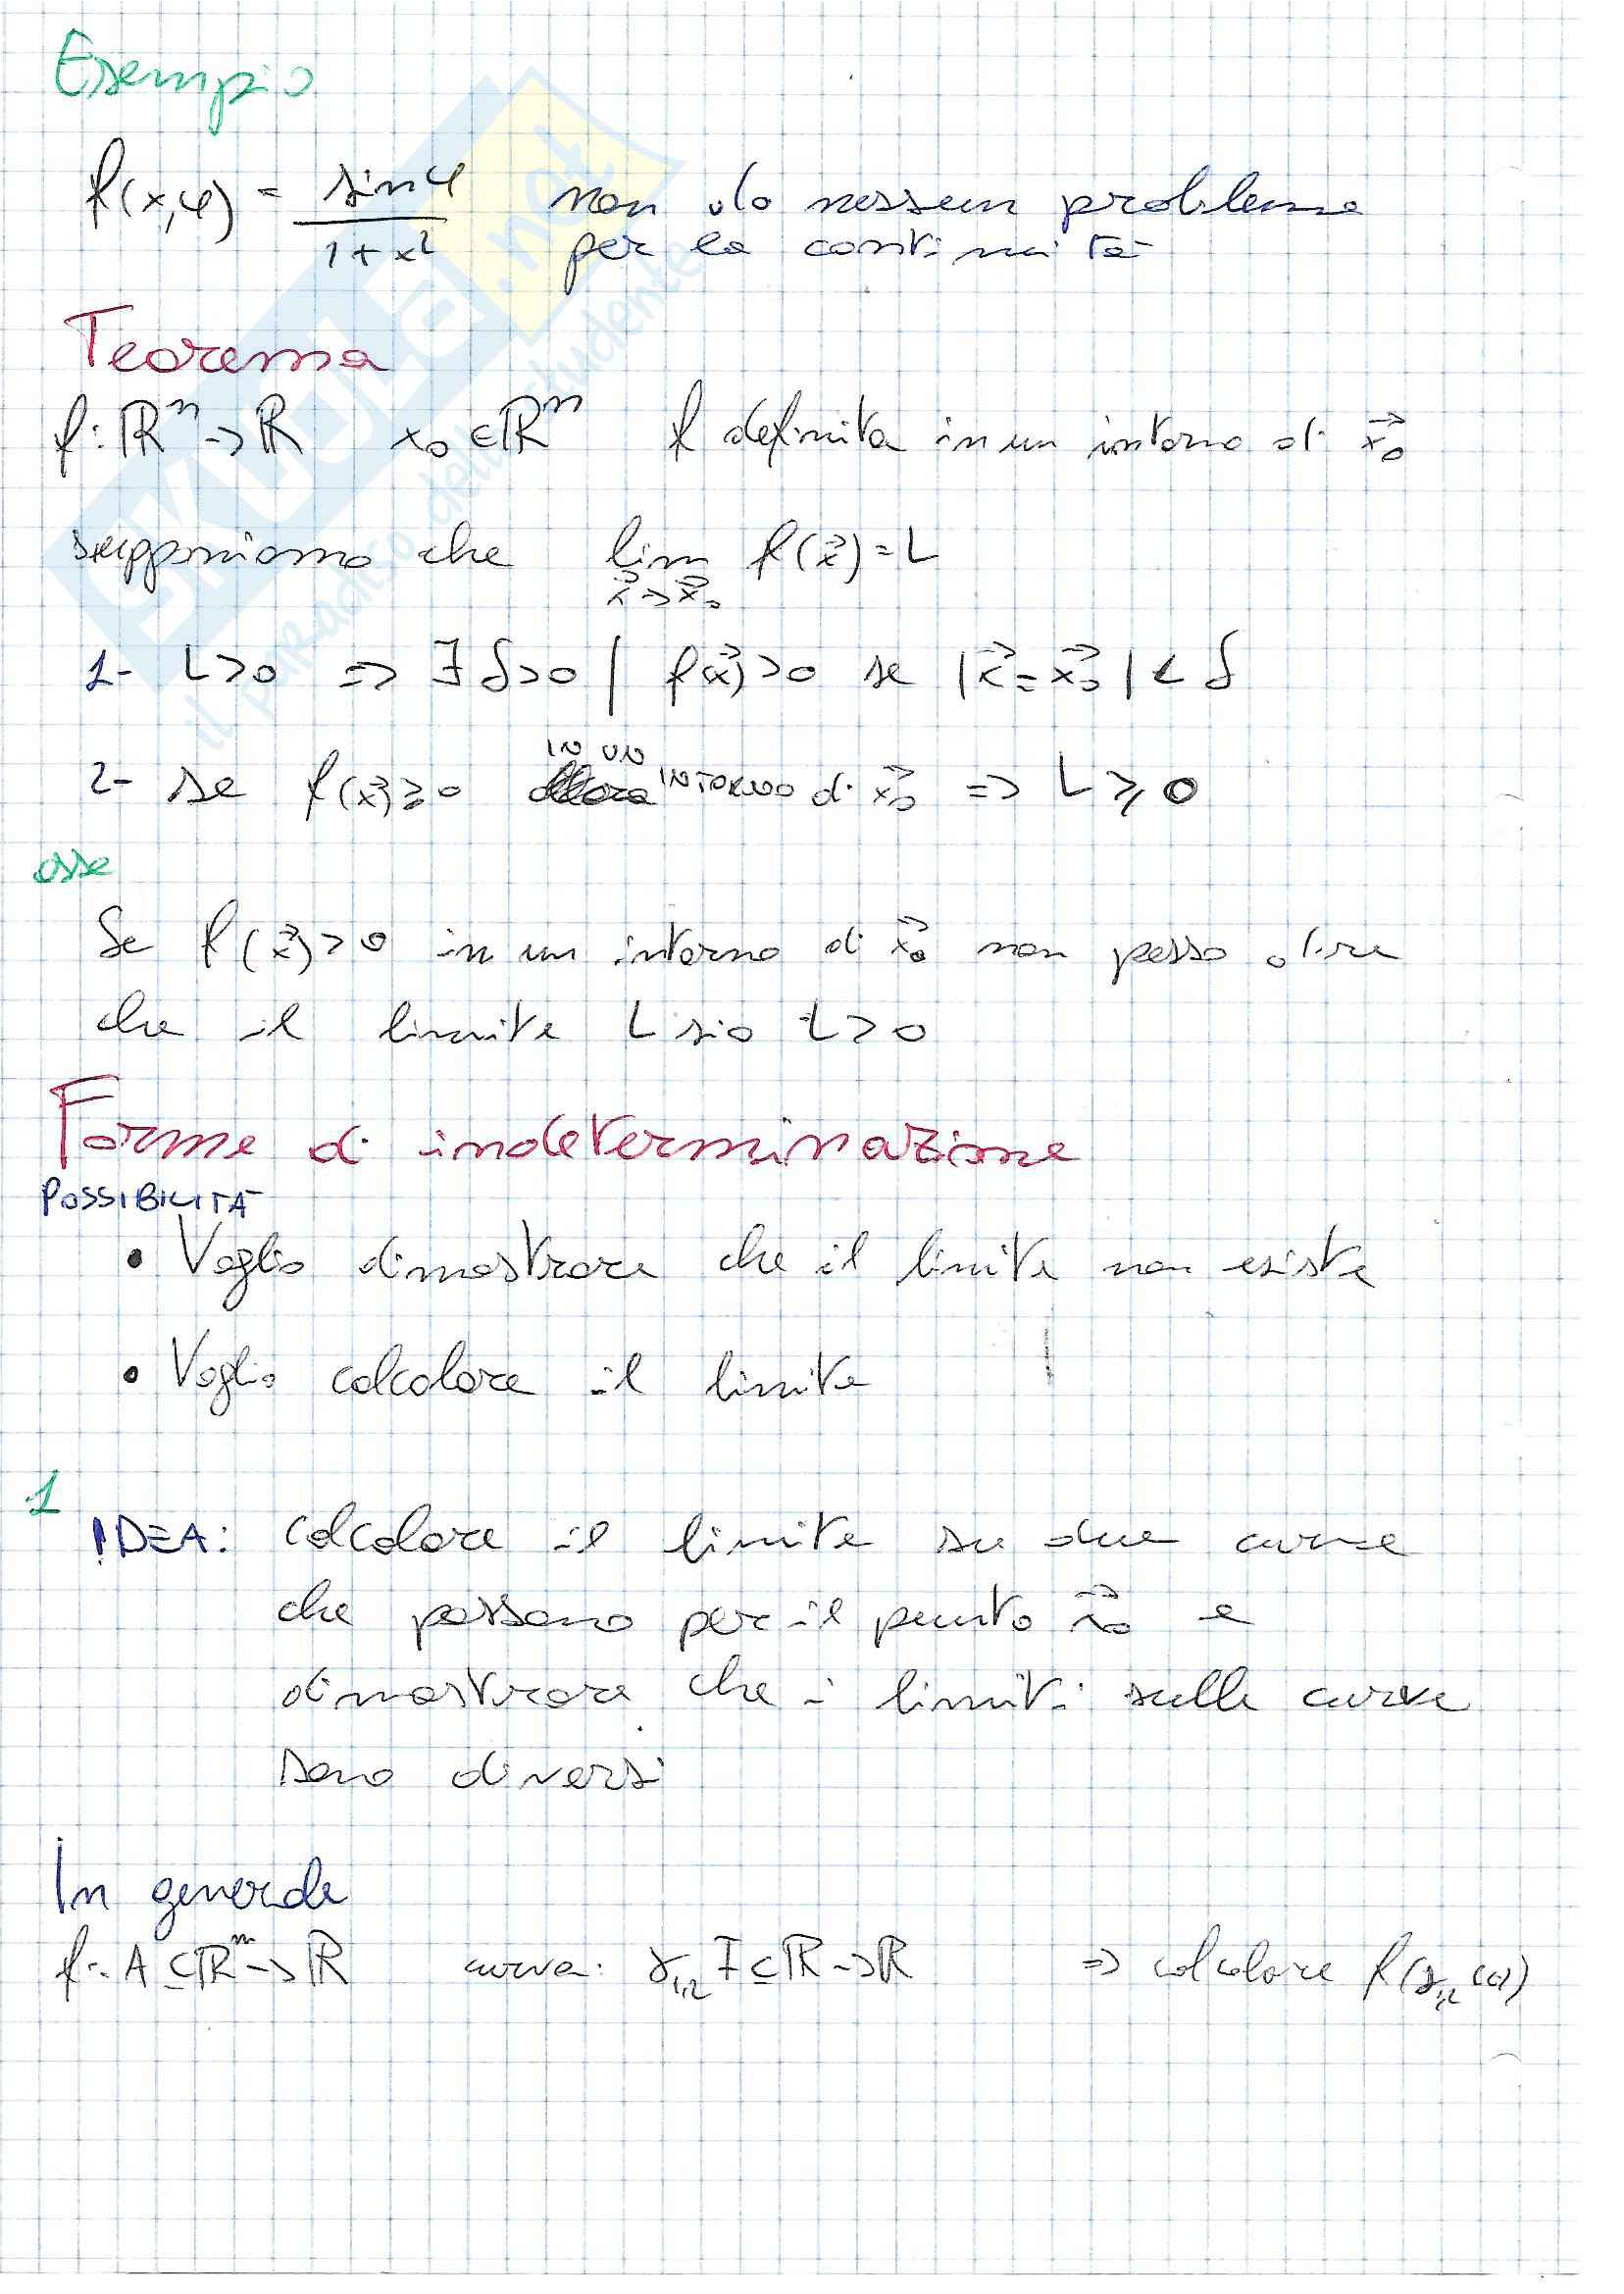 Esempio
f(x,y) = sin y / 1+x² non dà nessun problema
per la continuità
Teorema
f: ℝⁿ → ℝ x₀ ∈ ℝⁿ f definita in un intorno di x⃗₀
supponiamo che lim f(x⃗) = L
x⃗ → x⃗₀
1- L>0 => ∃ δ>0 | f(x⃗)>0 se |x⃗ - x⃗₀| < δ
2- se f(x⃗) ≥ 0 IN UN INTORNO di x⃗₀ => L ≥ 0
osse
Se f(x⃗)>0 in un intorno di x⃗₀ non posso dire
che il limite L sia L>0
Forme di indeterminazione
POSSIBILITÀ
• Voglio dimostrare che il limite non esiste
• Voglio calcolare il limite
1
IDEA: calcolare il limite su due curve
che passano per il punto x⃗₀ e
dimostrare che i limiti sulle curve
sono diversi
In generale
f: A ⊆ ℝⁿ → ℝ curva: γ₁,₂ I ⊆ ℝ → ℝ => calcolare f(γ₁,₂
SKUOLA.net
il paradiso dello studente